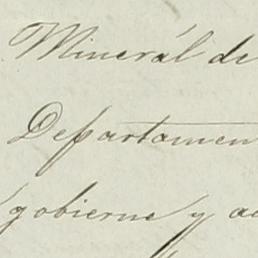 Minerál de
Departamen
gobierne y ad